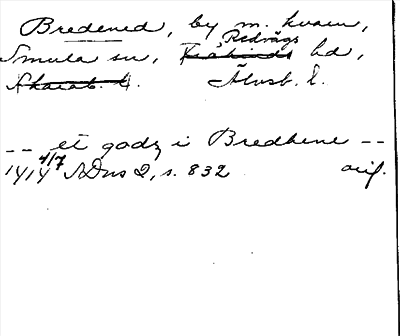 Bredened, by m. kvarn,
Redvägs
Smula sn, Kåkinds hd,
Skarab. l. Älvsb. l.
-- et godz i Bredhene --
4/7
1414 SDns 2, s. 832 orig.